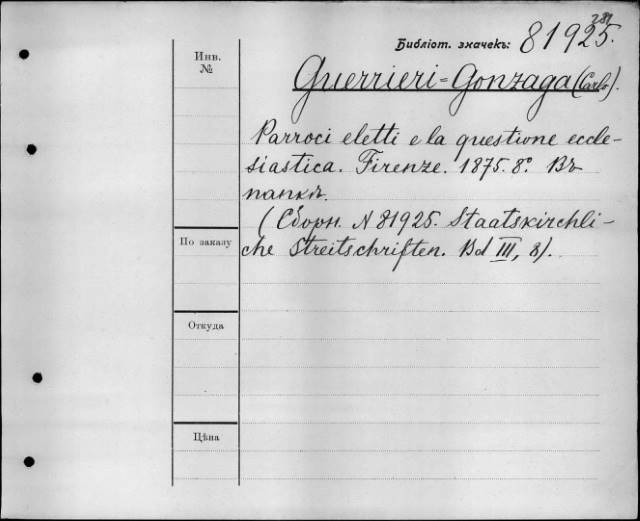 281
Библіот. значекъ: 81925.
Инв.
№
Guerrieri=Gonzaga (Carlo).
Parroci eletti e la questione eccle-
siastica. Firenze. 1875. 8°. Въ
папкѣ.
(Сборн. N 81925. Staatskirchli-
che Streitschriften. Bd III, 8).
По заказу
Откуда
Цѣна